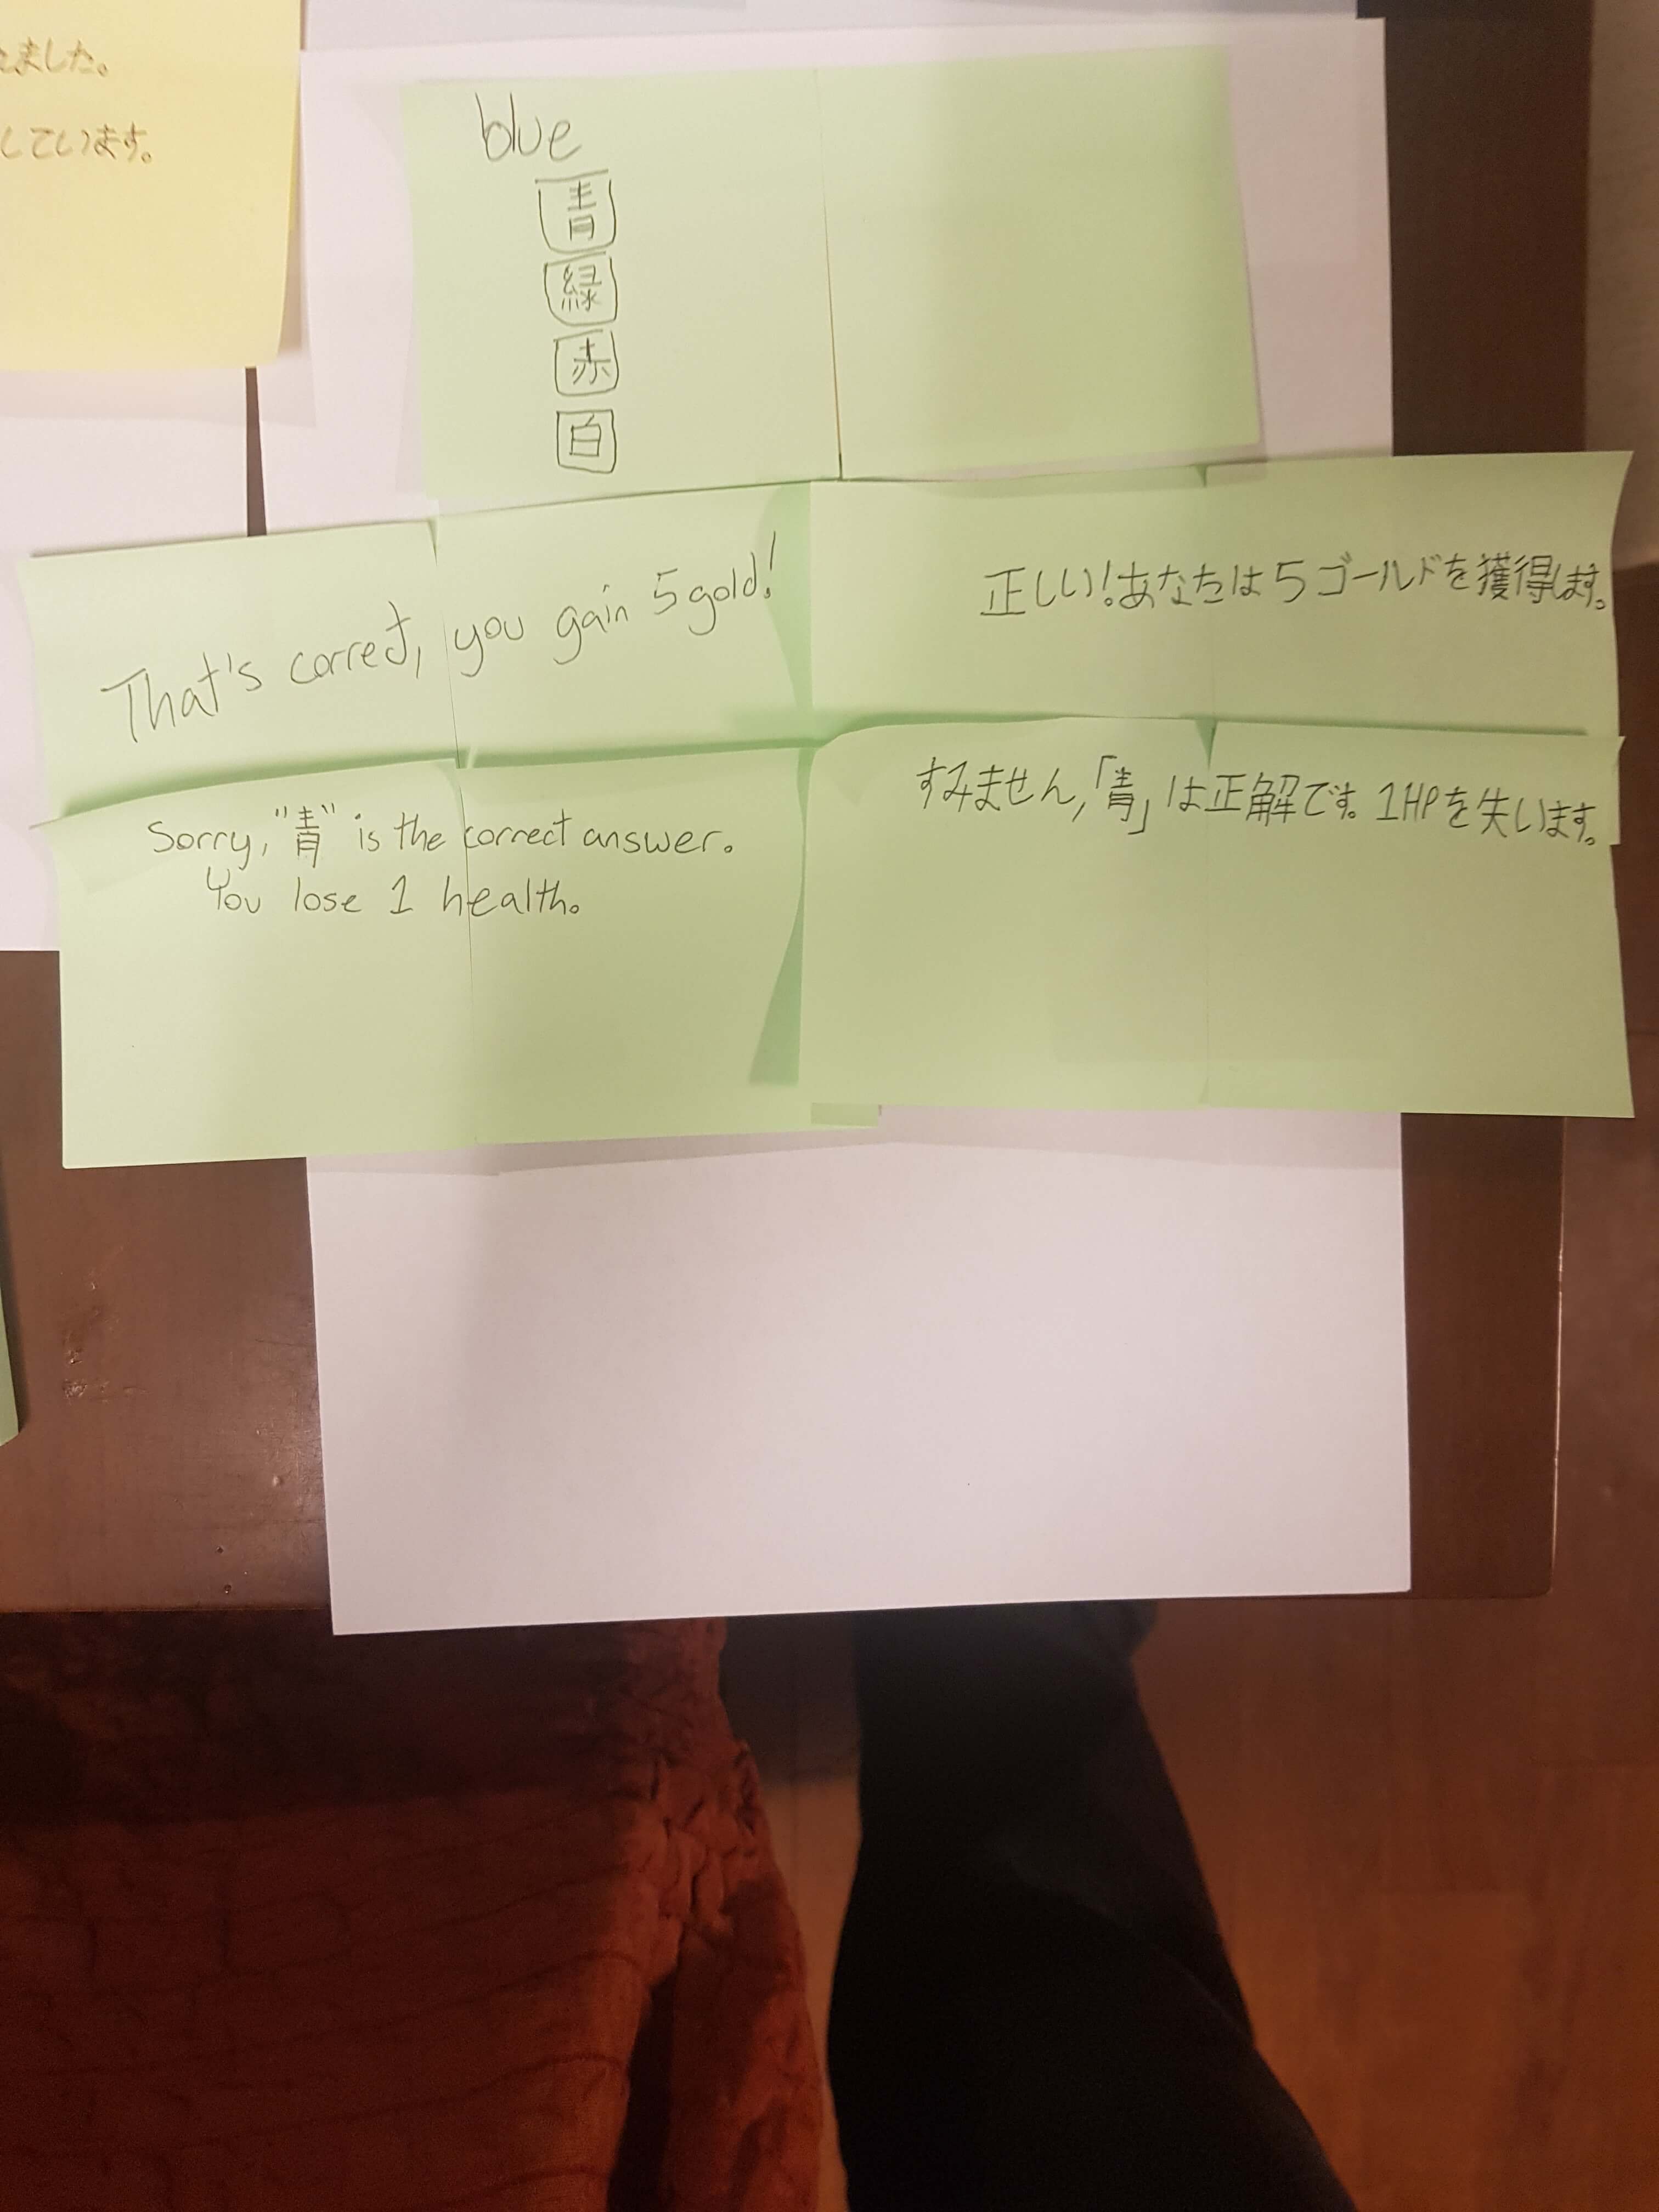 ました。
しています。
blue
青
緑
赤
白
That's correct, you gain 5 gold!
正しい!あなたは5ゴールドを獲得します。
Sorry, "青" is the correct answer.
You lose 1 health.
すみません,「青」は正解です。1HPを失います。